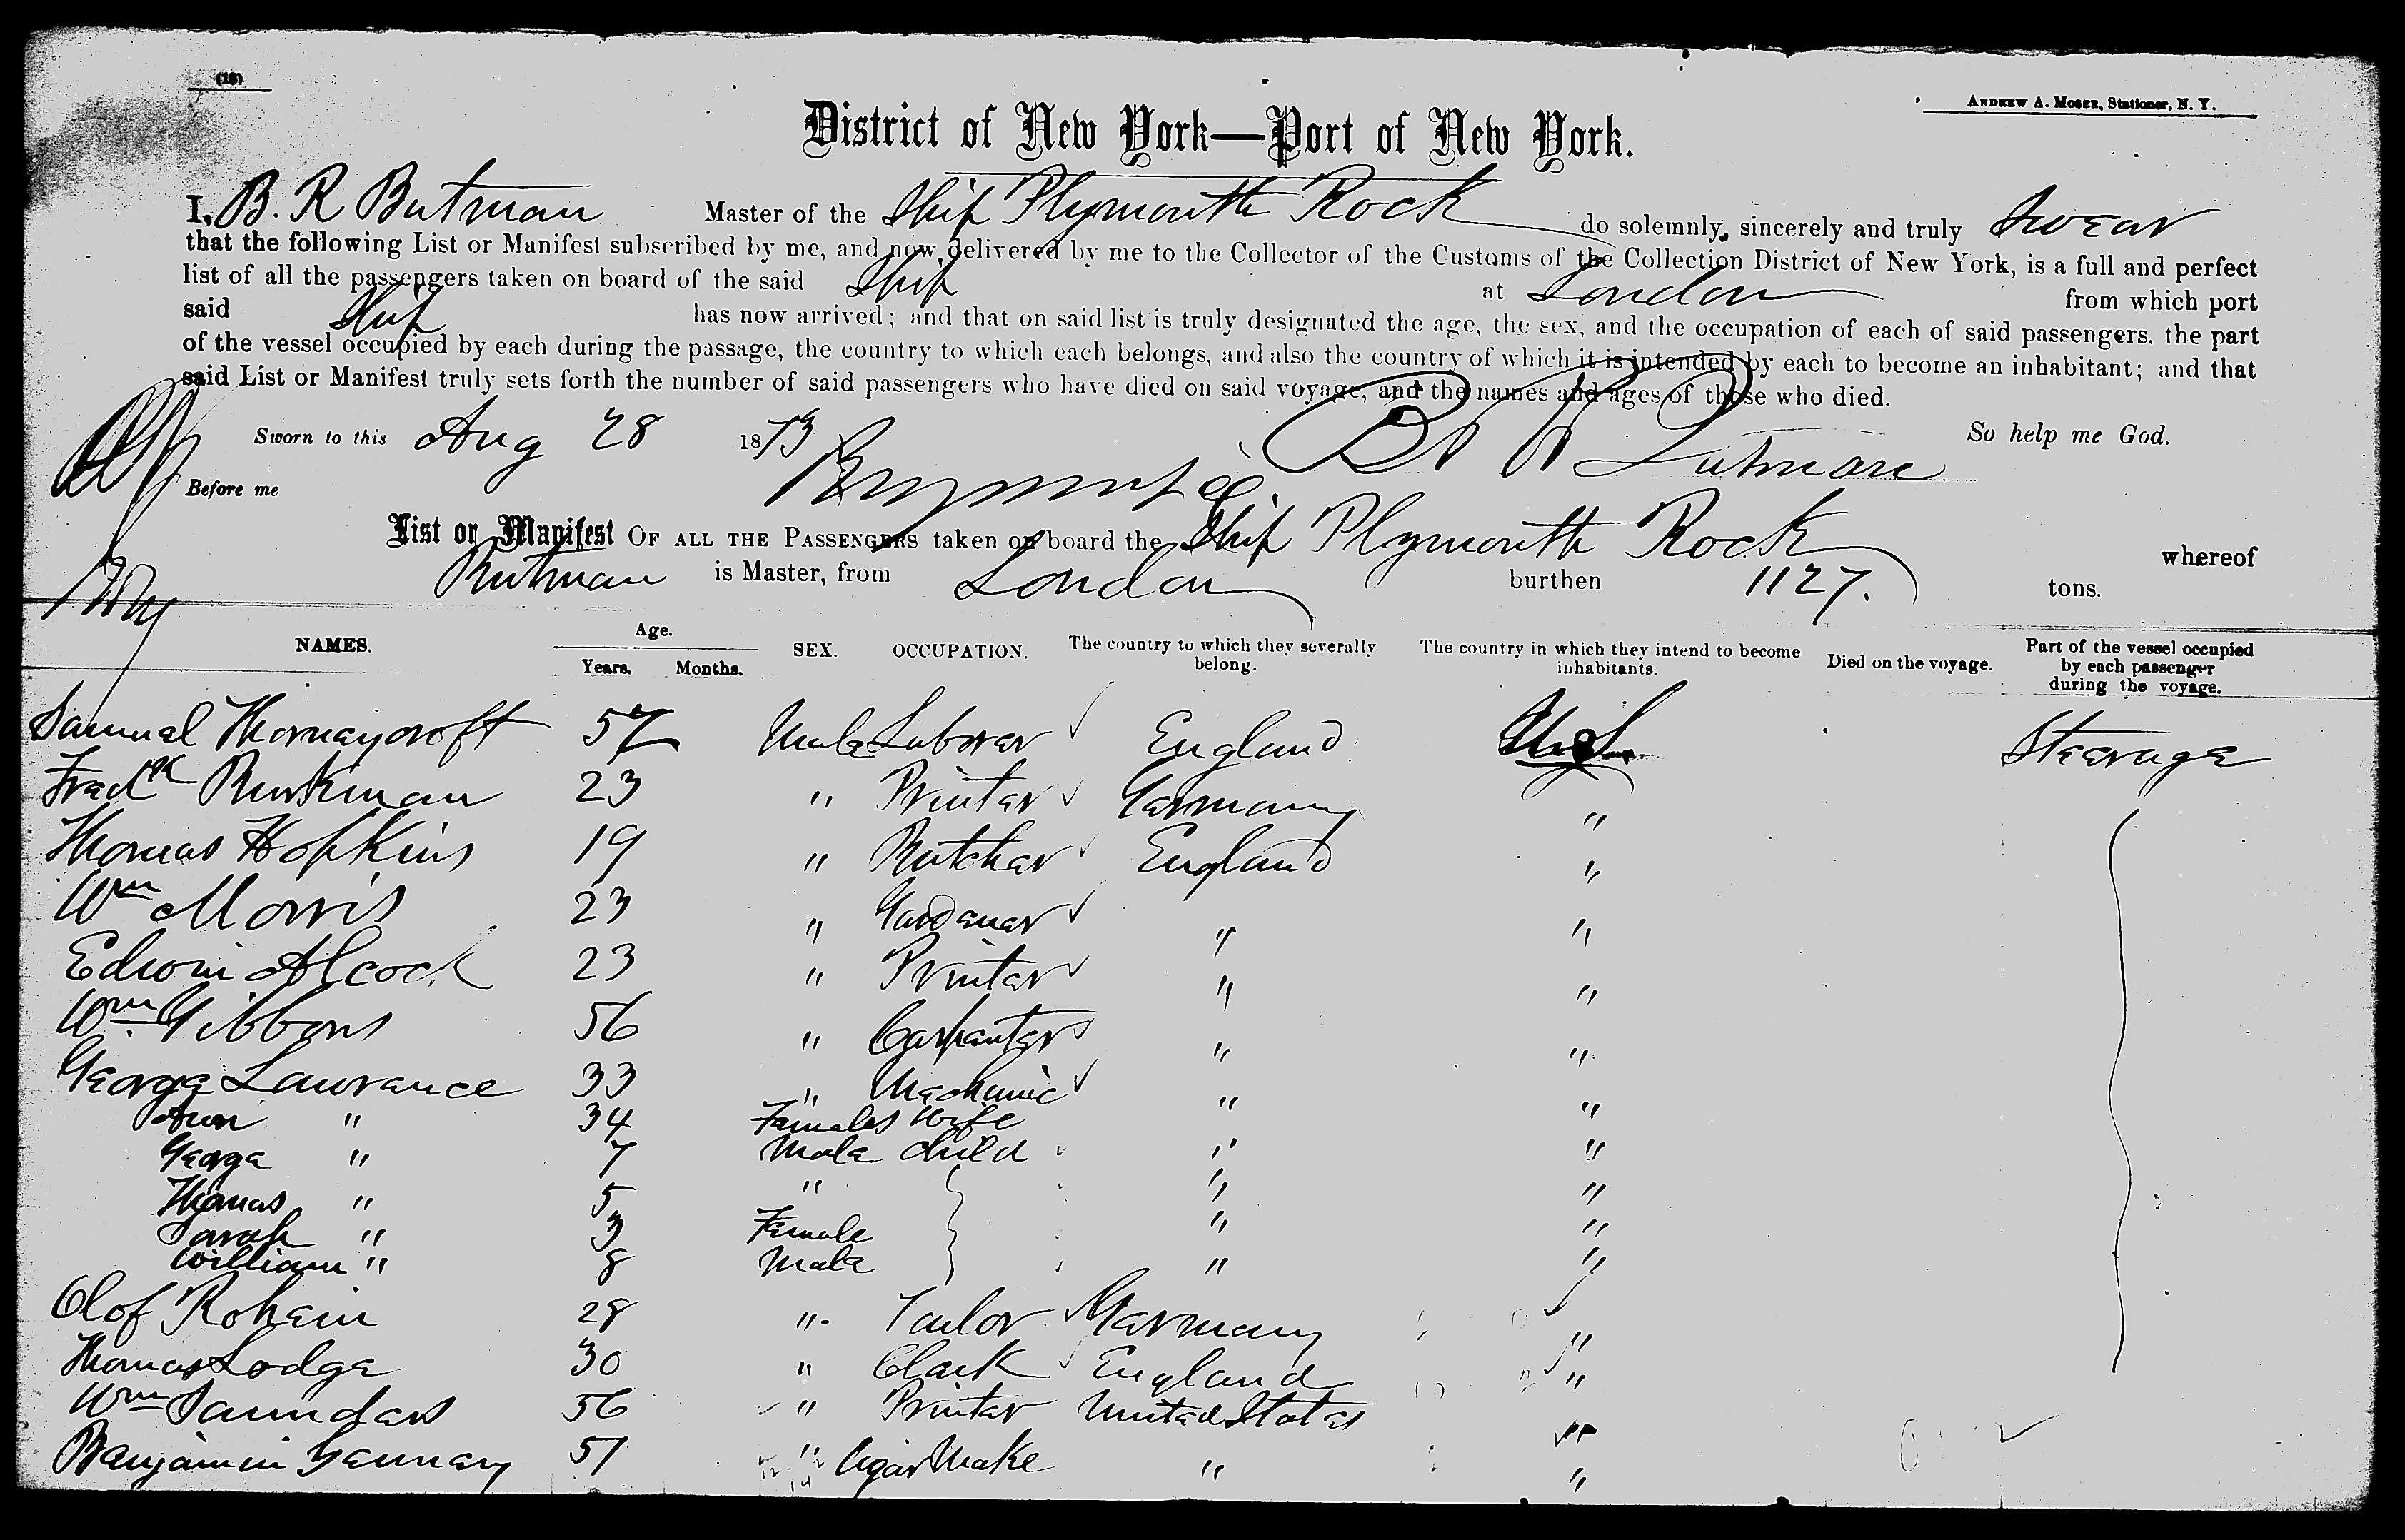 (18)
ANDREW A. MOSER, Stationer, N. Y.
District of New York—Port of New York.
I, B. R Butman Master of the Ship Plymouth Rock do solemnly, sincerely and truly Swear
that the following List or Manifest subscribed by me, and now delivered by me to the Collector of the Customs of the Collection District of New York, is a full and perfect
list of all the passengers taken on board of the said Ship at London from which port
said Ship has now arrived; and that on said list is truly designated the age, the sex, and the occupation of each of said passengers, the part
of the vessel occupied by each during the passage, the country to which each belongs, and also the country of which it is intended by each to become an inhabitant; and that
said List or Manifest truly sets forth the number of said passengers who have died on said voyage, and the names and ages of those who died.
Sworn to this Aug 28 1873 B R Butman So help me God.
Before me
List or Manifest OF ALL THE PASSENGERS taken on board the Ship Plymouth Rock whereof
Butman is Master, from London burthen 1127. tons.
NAMES. Age. Years. Months. SEX. OCCUPATION. The country to which they severally belong. The country in which they intend to become inhabitants. Died on the voyage. Part of the vessel occupied by each passenger during the voyage.
Samuel Thornaycroft 57 Male Laborer England U.S. Steerage
Fredck 23 " Printer Germany "
Thomas Hopkins 19 " Butcher England "
Wm Morris 23 " Gardener " "
Edwin Alcock 23 " Printer " "
Wm Gibbons 56 " Carpenter " "
George Lawrance 33 " Mechanic " "
Ann " 34 Females Wife " "
George " 7 Male Child " "
Thomas " 5 " " "
Sarah " 3 Female " "
William " 8 Male " "
Olof 28 " Tailor Germany "
Thomas Lodge 30 " Clerk England "
Wm Saunders 56 " Printer United States "
Benjamin 51 " Cigar Make " "